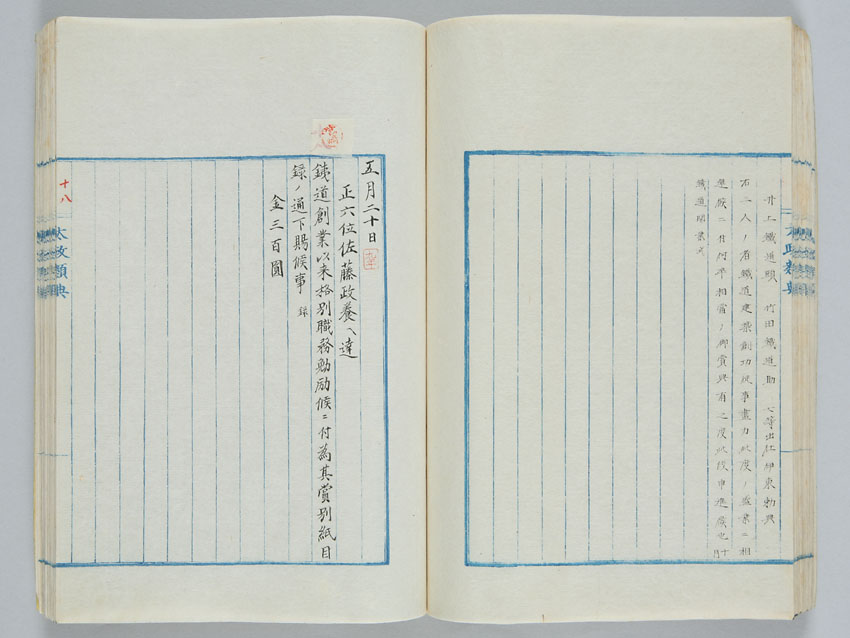 井上鐵道頭 竹田鐵道助 七等出仕伊東勅典
右二人ノ者鐵道建築創功従事盡力此度ノ盛業ニ相
至成ニ付何卒相當ノ御賞典有之度此段申進成也 十月
鐵道開業式
太政類典
五月二十日
正六位佐藤政養ヘ達
鉄道創業以来格別職務勉励候ニ付為其賞別紙目
録ノ通下賜候事 録
金三百圓
太政類典
十八